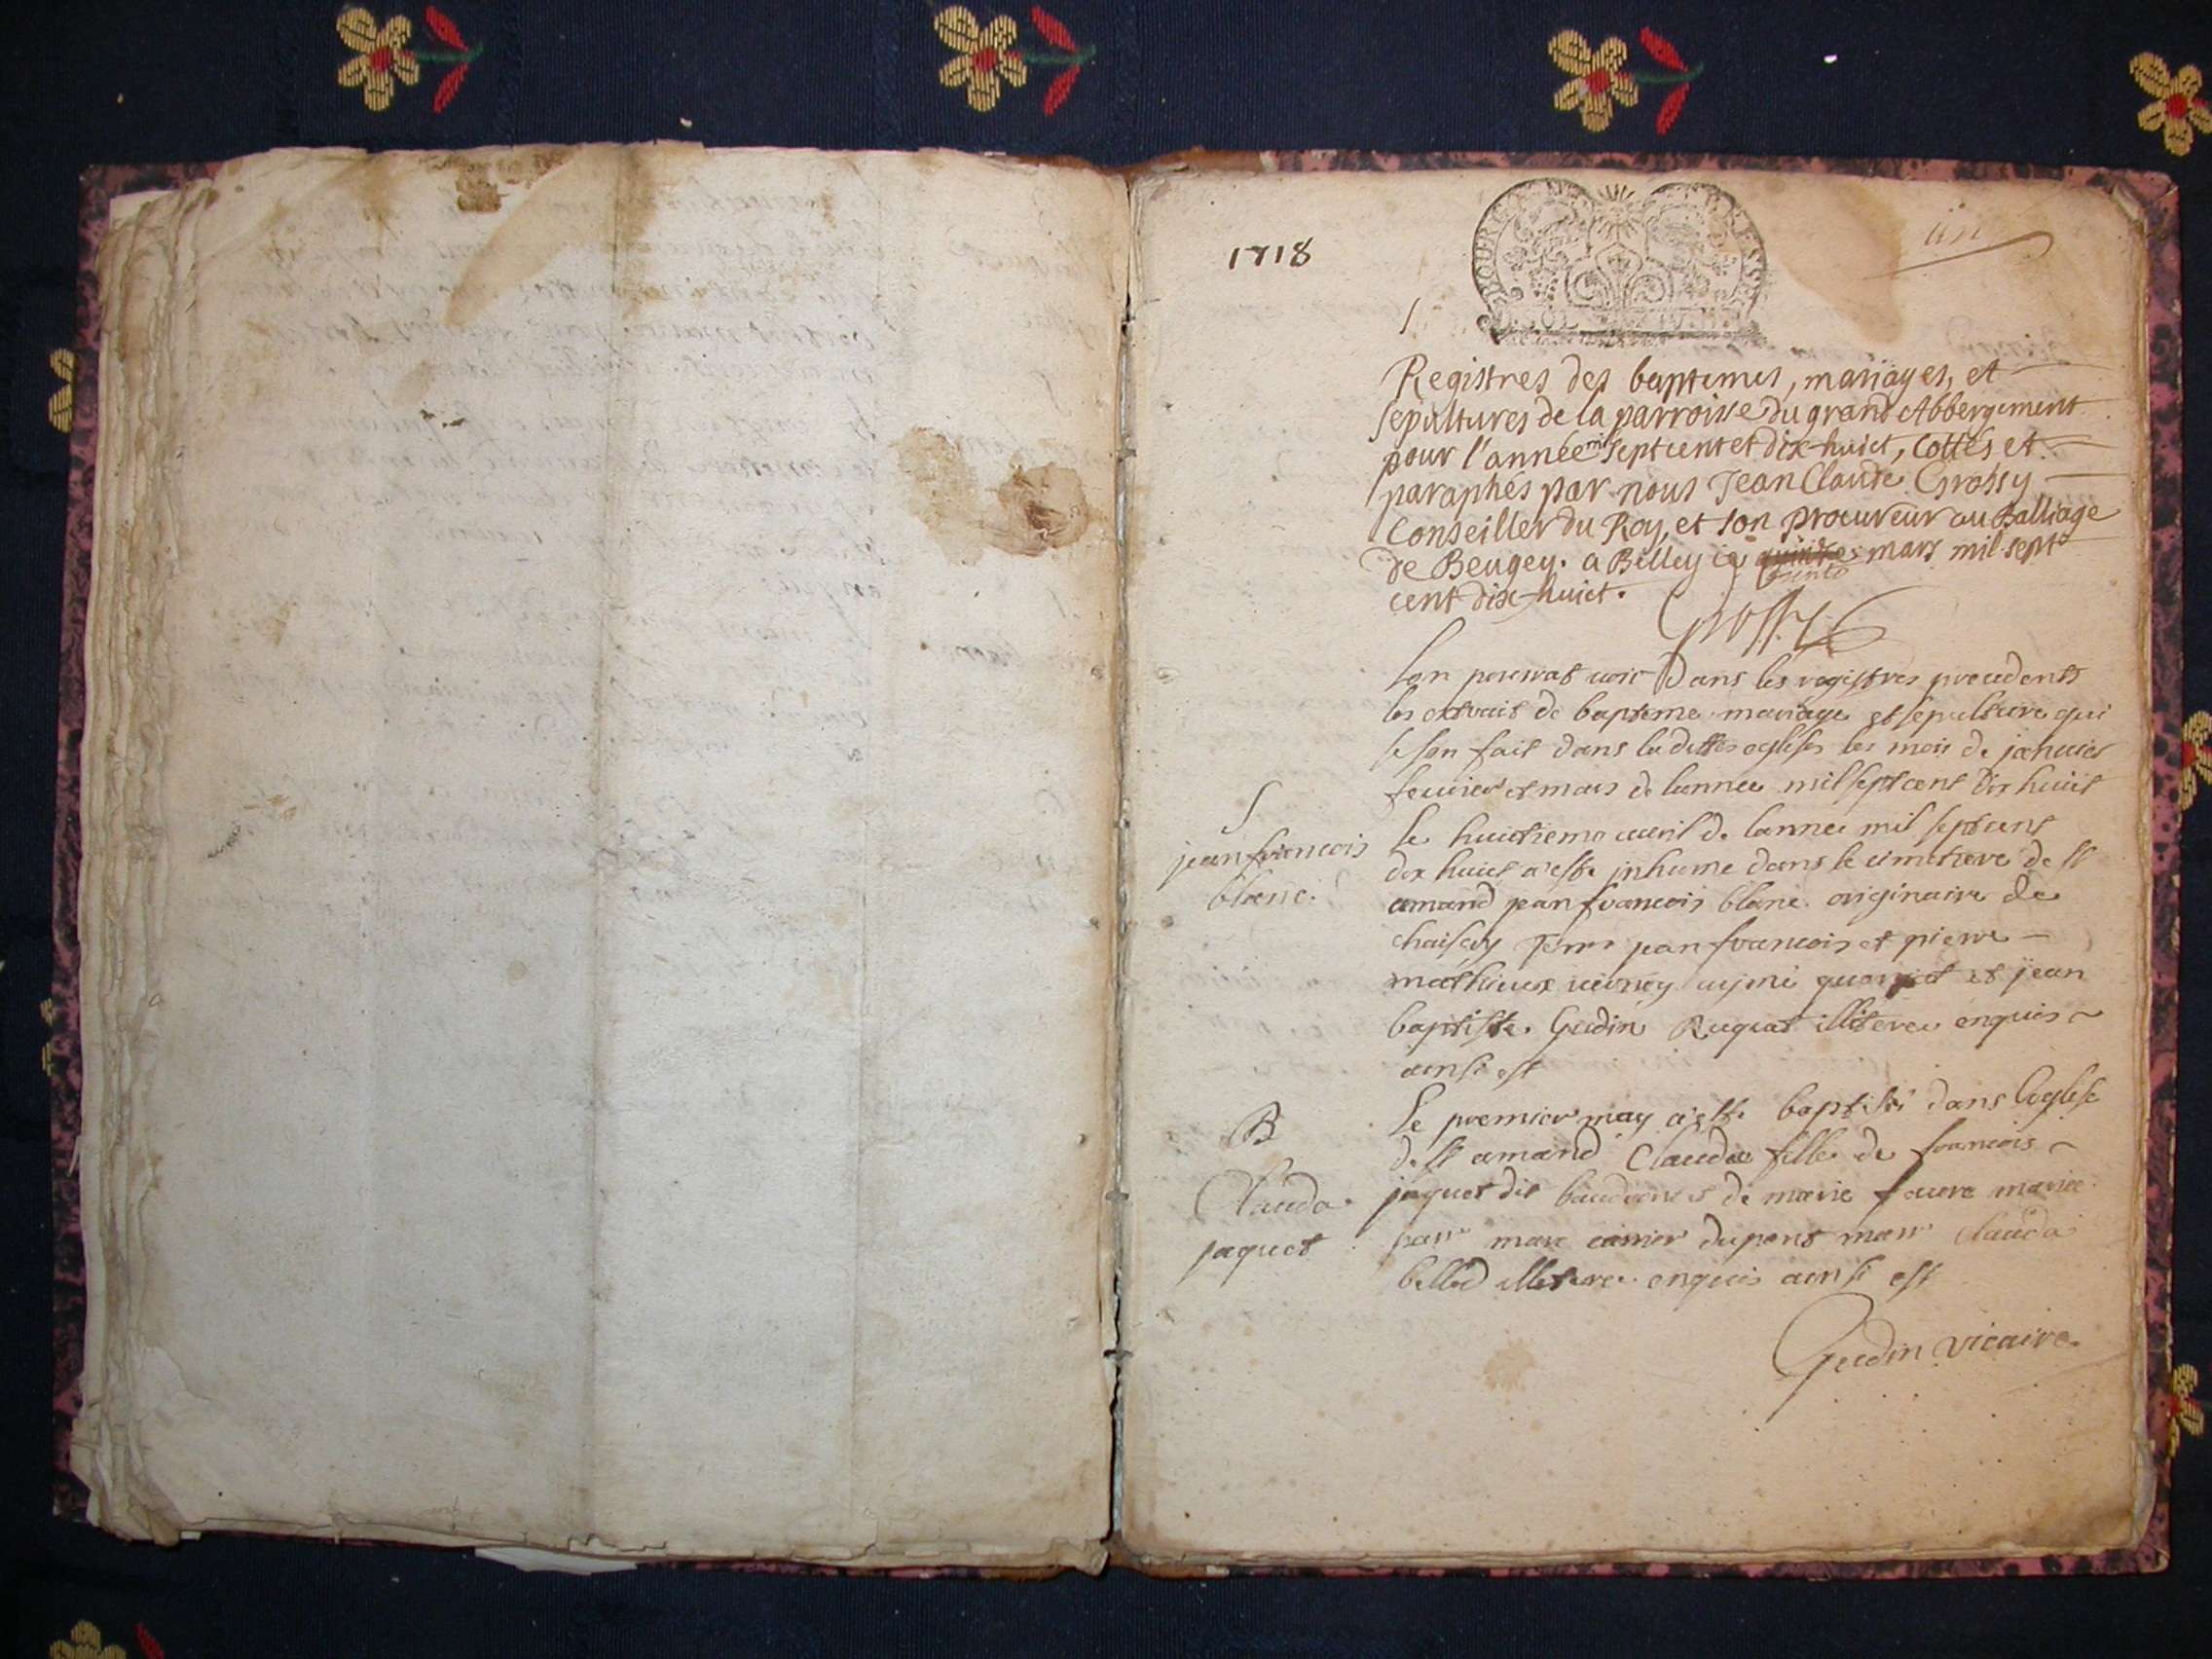 1718
un
Registres des baptemes, mariages, et
sepultures de la parroisse du grand Abbergement
pour l'année mil sept cent et dix-huict, cottés et
paraphés par nous Jean Claude Grossy
Conseiller du Roy, et son procureur au Balliage
de Beugey. a Belley ce trente mars mil sept
cent dix-huict.
Grossy
lon pourrat voir dans les registres precedents
les extrait de bapteme mariage et sepulture qui
se son fait dans la dittes eglises les mois de januier
feurier et mars de lannee mil sept cent dix huict
S
jean francois
blanc.
le huictieme auril de lannee mil sept cent
dix huict a este inhume dans le cimetiere de st
amand jean francois blanc originaire de
jean francois et pierre
mathieux et jean
baptiste. Gudin illitere enquis
ainsi est
B
Clauda
jaquet
le premier may a este baptisé dans leglise
de st amand Claudaz fille de francois
jaquet dit et de marie faure mariee
parr marc du pont marr clauda
belled illitere enquis ainsi est
Gudin vicaire